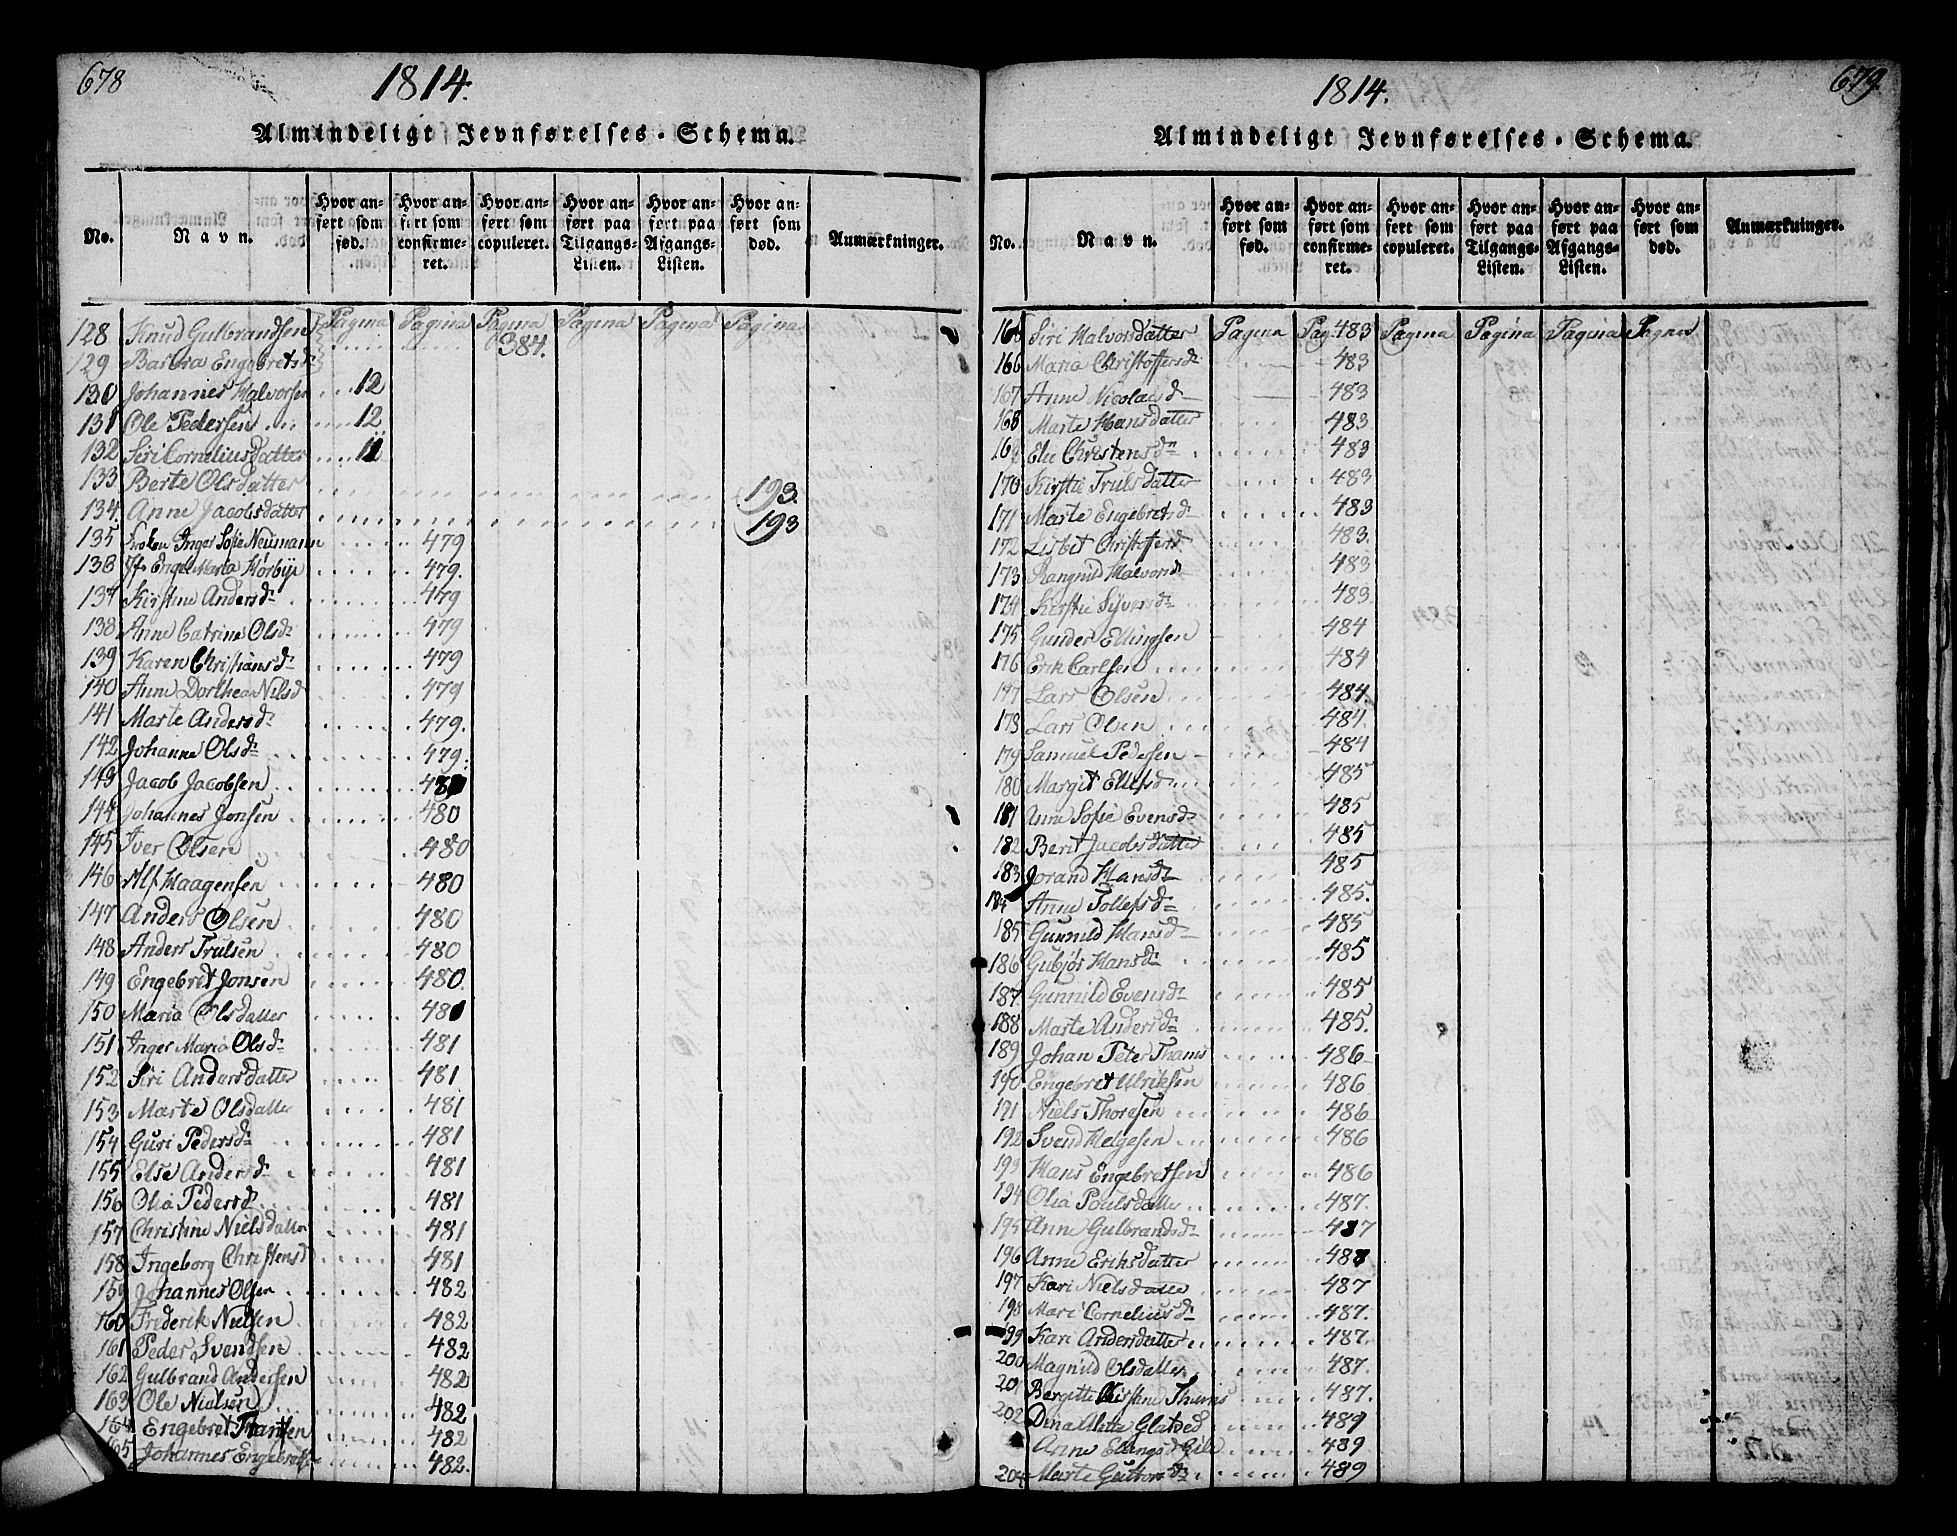 678
1814.
Almindeligt Jevnførelses-Schema.
No. Navn. Hvor anført som fød. Hvor anført som confirmeret. Hvor anført som copuleret. Hvor anført paa Tilgangs-Listen. Hvor anført paa Afgangs-Listen. Hvor anført som død. Anmærkninger.
128 Knud Gulbrandsen Pagina Pagina Pagina Pagina Pagina Pagina
129 Barbra Engebretsd 384.
130 Johannes Halvorsen 12
131 Ole Pedersen 12
132 Siri Cornelius Datter 11
133 Berte Olsdatter 193.
134. Anne Jacobsdatter 193
135 Frøken Inger Sofie Neumann 479
136 Jfr Engel Maria Korbye 479.
137 Kirstine Andersd 479
138 Anne Catrine Olsd 479
139 Karen Christiansd 479
140 Anne Dorthea Nilsd 479
141 Marte Andersd 479.
142 Johanne Olsd 479.
143 Jacob Jacobsen 480
144 Johannes Jonsen 480
145 Iver Olsen 480
146 Alf Haagensen 480
147 Anders Olsen 480
148 Anders Trulsen 480
149 Engebret Jonsen 480.
150 Maria Olsdatter 481
151 Inger Maria Olsd 481
152 Siri Andersdatter 481
153 Marte Olsdatter 481
154 Guri Pedersd 481
155 Else Andersd 481
156 Olia Pedersd 481
157 Christine Nielsdatter 481
158 Ingeborg Christensd 481
159 Johannes Olsen 482
160 Friderik Nielsen 482
161 Peder Svendsen 482
162 Gulbrand Andersen 482
163 Ole Nielsen 482
164 Engebret Hansen 482
165 Johannes Engebretsen 482.
679
1814.
Almindeligt Jevnførelses-Schema.
No. Navn. Hvor anført som fød. Hvor anført som confirmeret. Hvor anført som copuleret. Hvor anført paa Tilgangs-Listen. Hvor anført paa Afgangs-Listen. Hvor anført som død. Anmærkninger.
Siri Halvorsdatter Pagina Pag. 483 Pagina Pagina Pagina Pagina
166 Maria Christoffersd 483
167 Anne Nicolaisd 483
168 Marte Hansdatter 483
169 Elie Christensd 483
170 Kirstie Trulsdatter 483
171 Marte Engebretsd 483
172 Lisbet Christoffersd 483.
173 Rangnild Halvorsd 483
174 Kirstie Syversd 483.
175 Gunder Ellingsen 484
176 Erik Carlsen 484
177 Lars Olsen 484.
178 Lars Olsen 484.
179 Samuel Pedersen 484
180 Margit Ellefsd 485
181 Anne Sofie Evensd 485
182 Berit Jacobsdatter 485
183 Jorand Hansd 485
184 Anne Tollefsd 485.
185 Gunnild Hansd 485
186 Gubjør Hansd 485
187 Gunnild Evensd 485
188 Marte Andersd 485.
189 Johan Peter Thams 486
190 Engebret Ulriksen 486
191 Niels Thoresen 486
192 Svend Helgesen 486
193 Hans Engebretsen 486
194 Olia Poulsdatter 487.
195 Anne Gulbrandsd 487
196 Anne Eriksdatter 487
197 Kari Nielsdatter 487
198 Mari Corneliusd 487.
199 Kari Andersdatter 487.
200 Magnild Olsdatter 487.
201 Birgitte Kirstine Thams 487.
202 Dina Mette Glatved 489
Anne Ellingsd 489
204 Marte Guttormsd 489